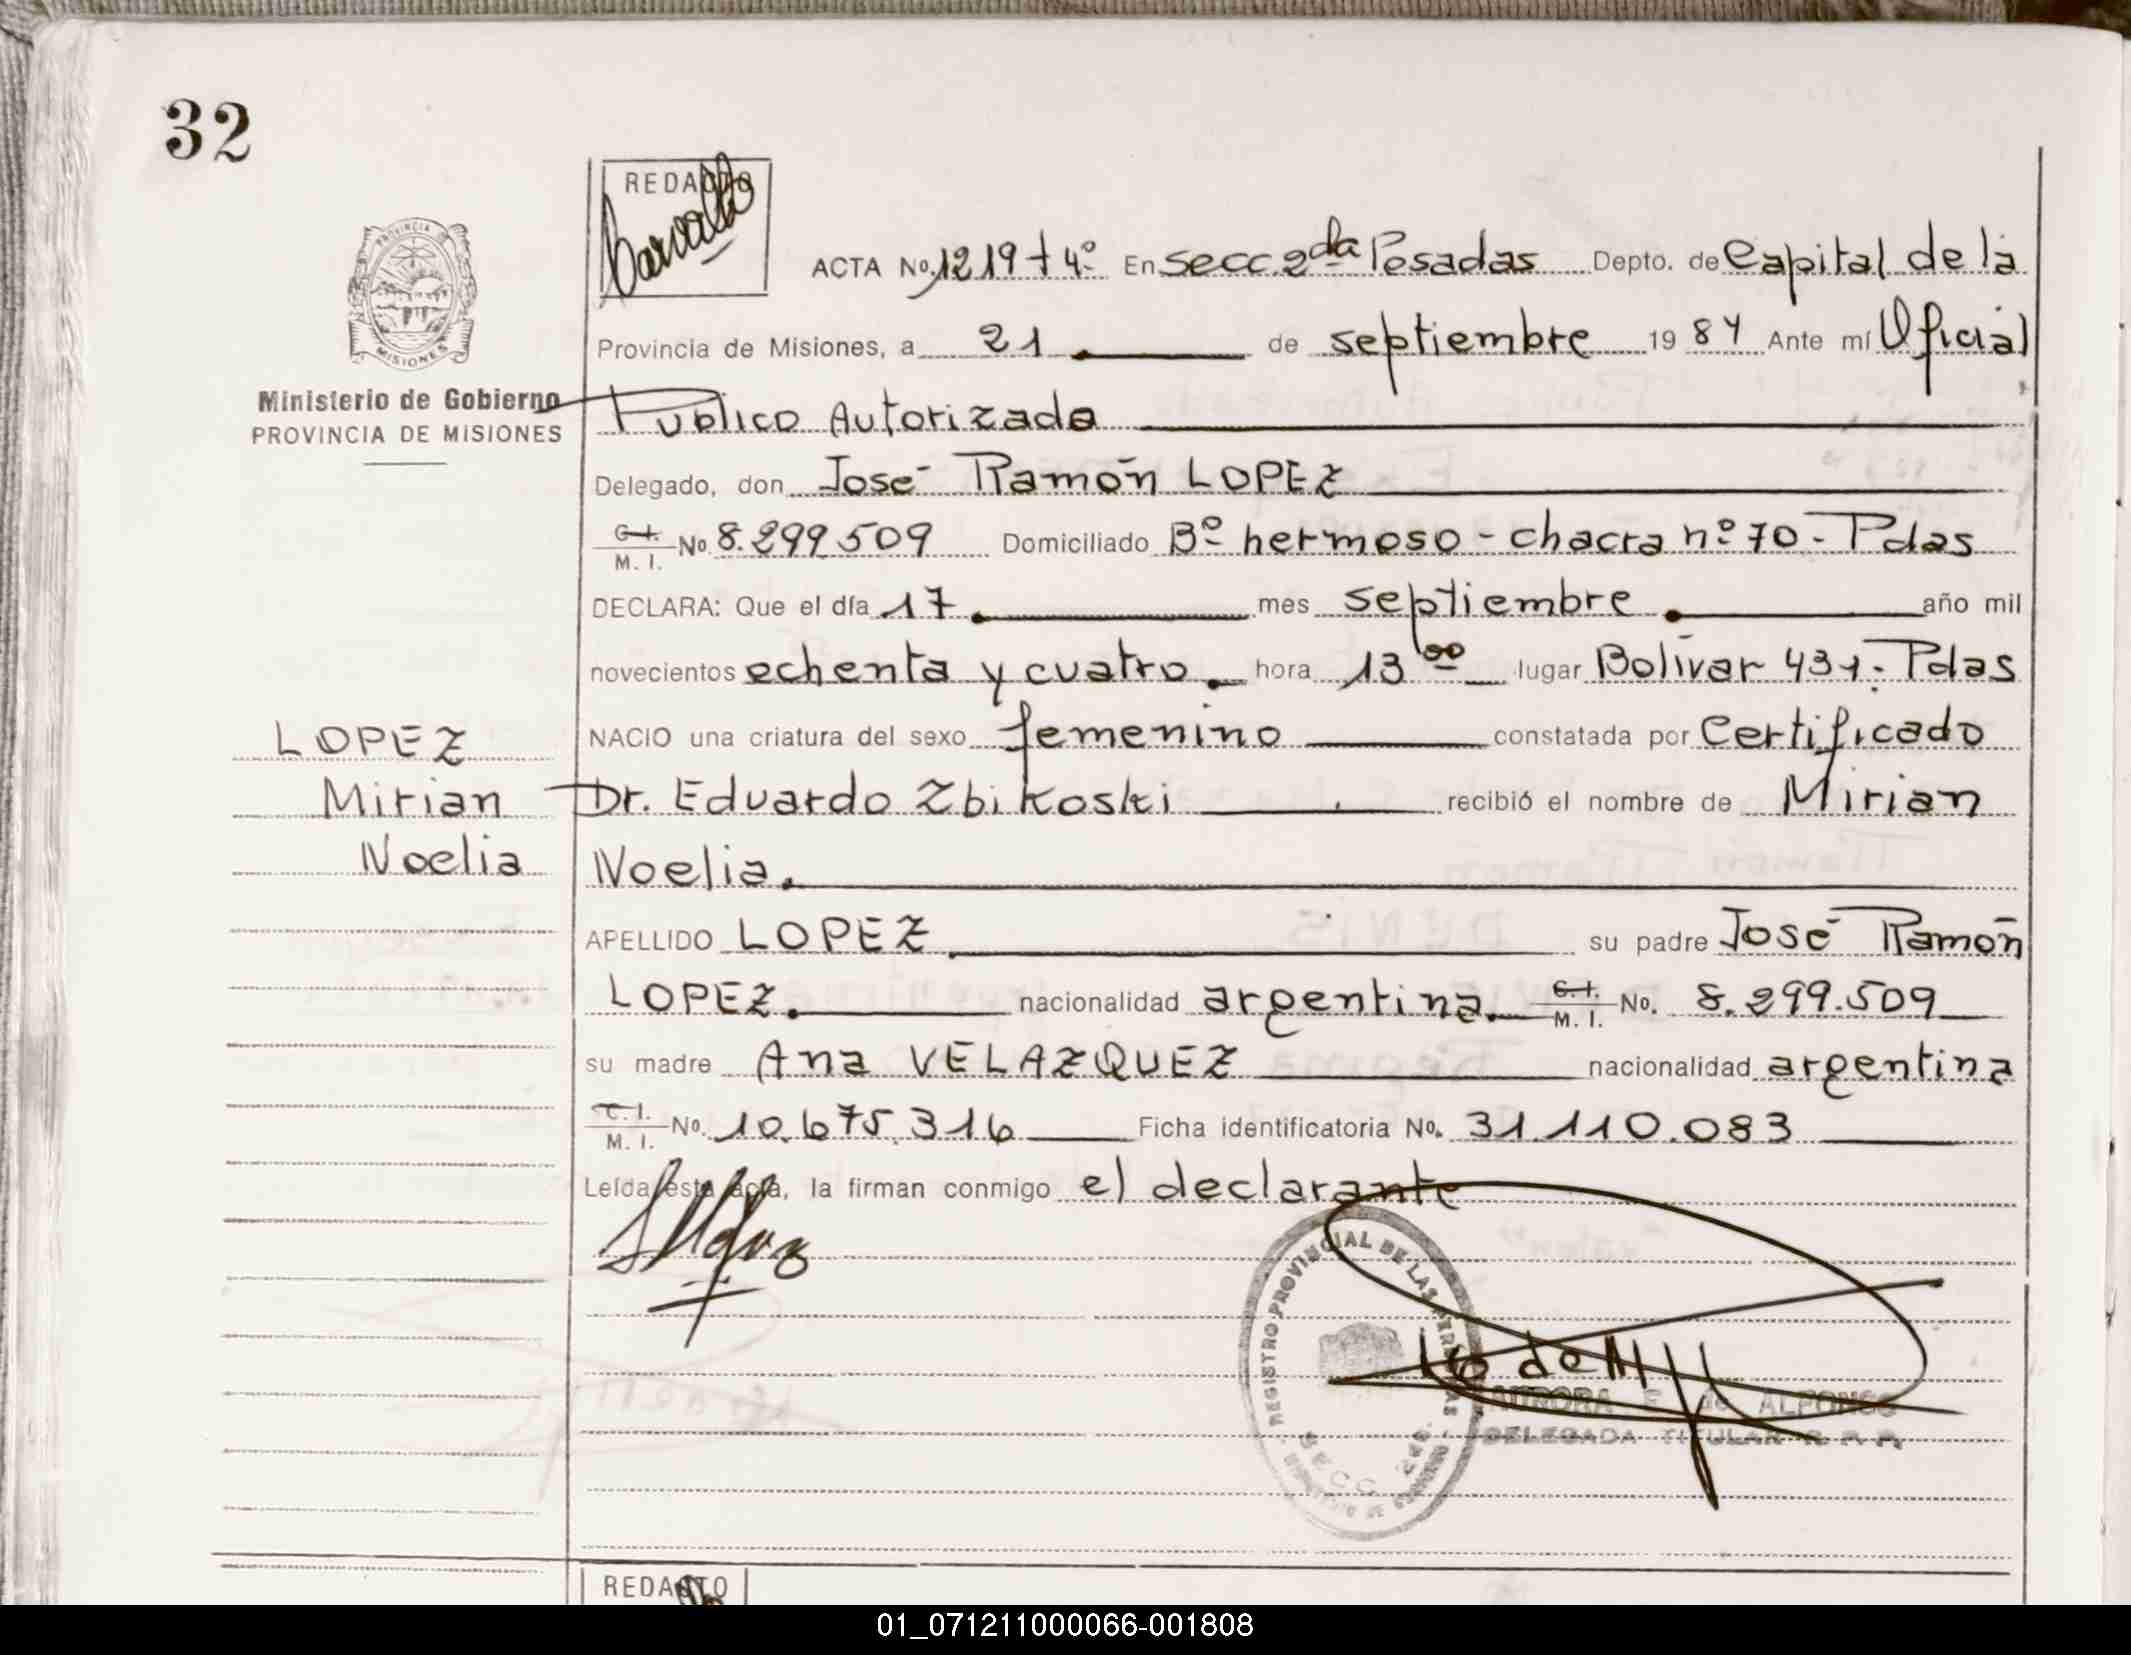 32
REDACTO
Carvallo
PROVINCIA DE
MISIONES
Ministerio de Gobierno
PROVINCIA DE MISIONES
ACTA No. 1219 t 4º En secc. 2da Posadas Depto. de Capital de la
Provincia de Misiones, a 21 de septiembre 1984 Ante mí Oficial
Publico Autorizado
Delegado, don José Ramón LOPEZ
C.I. M. I. No. 8.299.509 Domiciliado Bº hermoso - chacra nº 70 - Pdas
DECLARA: Que el día 17 mes septiembre año mil
novecientos ochenta y cuatro hora 13 00 lugar Bolívar 431. Pdas
NACIO una criatura del sexo femenino constatada por Certificado
Dr. Eduardo Zbikoski recibió el nombre de Mirian
Noelia.
LOPEZ
Mirian
Noelia
APELLIDO LOPEZ su padre José Ramón
LOPEZ. nacionalidad argentina. C.I. M. I. No. 8.299.509
su madre Ana VELAZQUEZ nacionalidad argentina
C.I. M. I. No. 10.675.316 Ficha identificatoria No. 31.110.083
Leída esta acta, la firman conmigo el declarante
REGISTRO PROVINCIAL DE LAS
SECC. 2da.
AURORA E. de ALFONSO
DELEGADA TITULAR R. P. P.
REDACTO
01_071211000066-001808